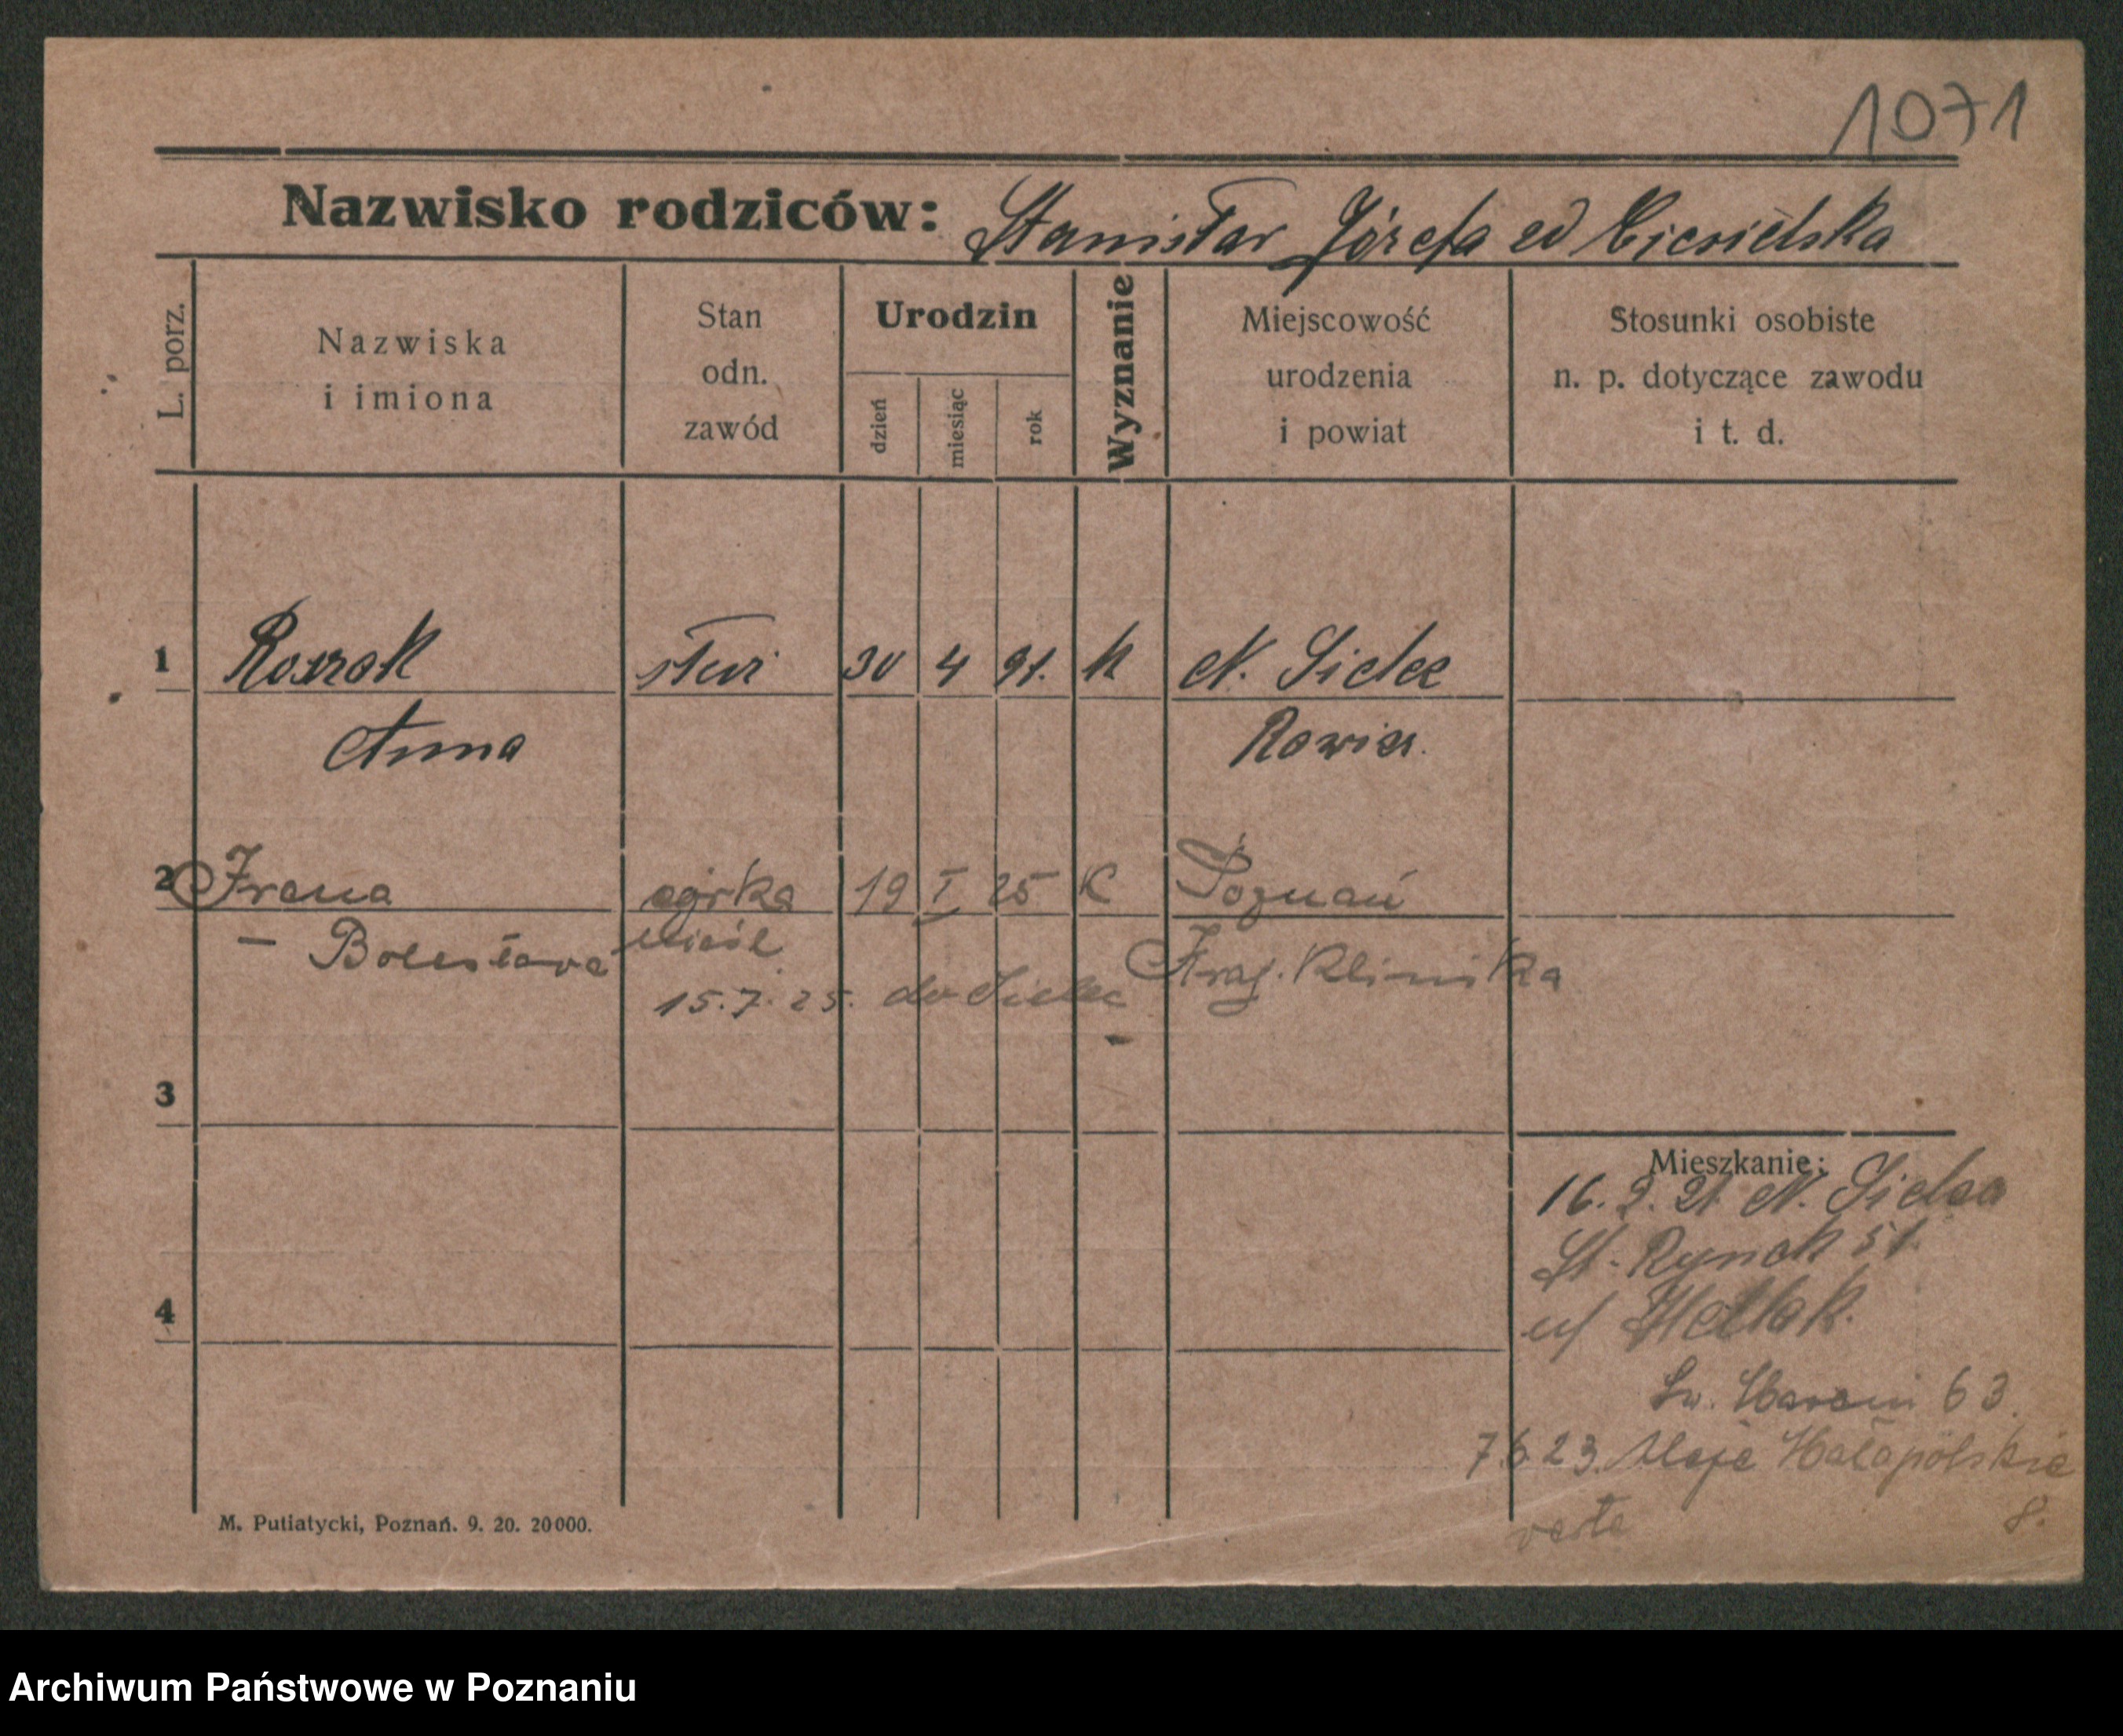 1071
Nazwisko rodziców: Stanisław Józefa ed Ciesielska
L. porz.
Nazwiska i imiona
Stan odn. zawód
Urodzin
dzień miesiąc rok
Wyznanie
Miejscowość urodzenia i powiat
Stosunki osobiste n. p. dotyczące zawodu i t. d.
1 Roszak 30 4 91. k N. Sielec
Anna Rawicz.
2 Irena córka 19 I 25 K Poznań
– Bolesława nieśl Klinika
15.7.25. do Sielec
3
Mieszkanie:
16. 2. 21. N. Sielec
4
St. Rynek 51.
u/
Św. Marcin 63.
7.6.23. Aleje Małopolskie
8.
verte
M. Putiatycki, Poznań. 9. 20. 20000.
Archiwum Państwowe w Poznaniu